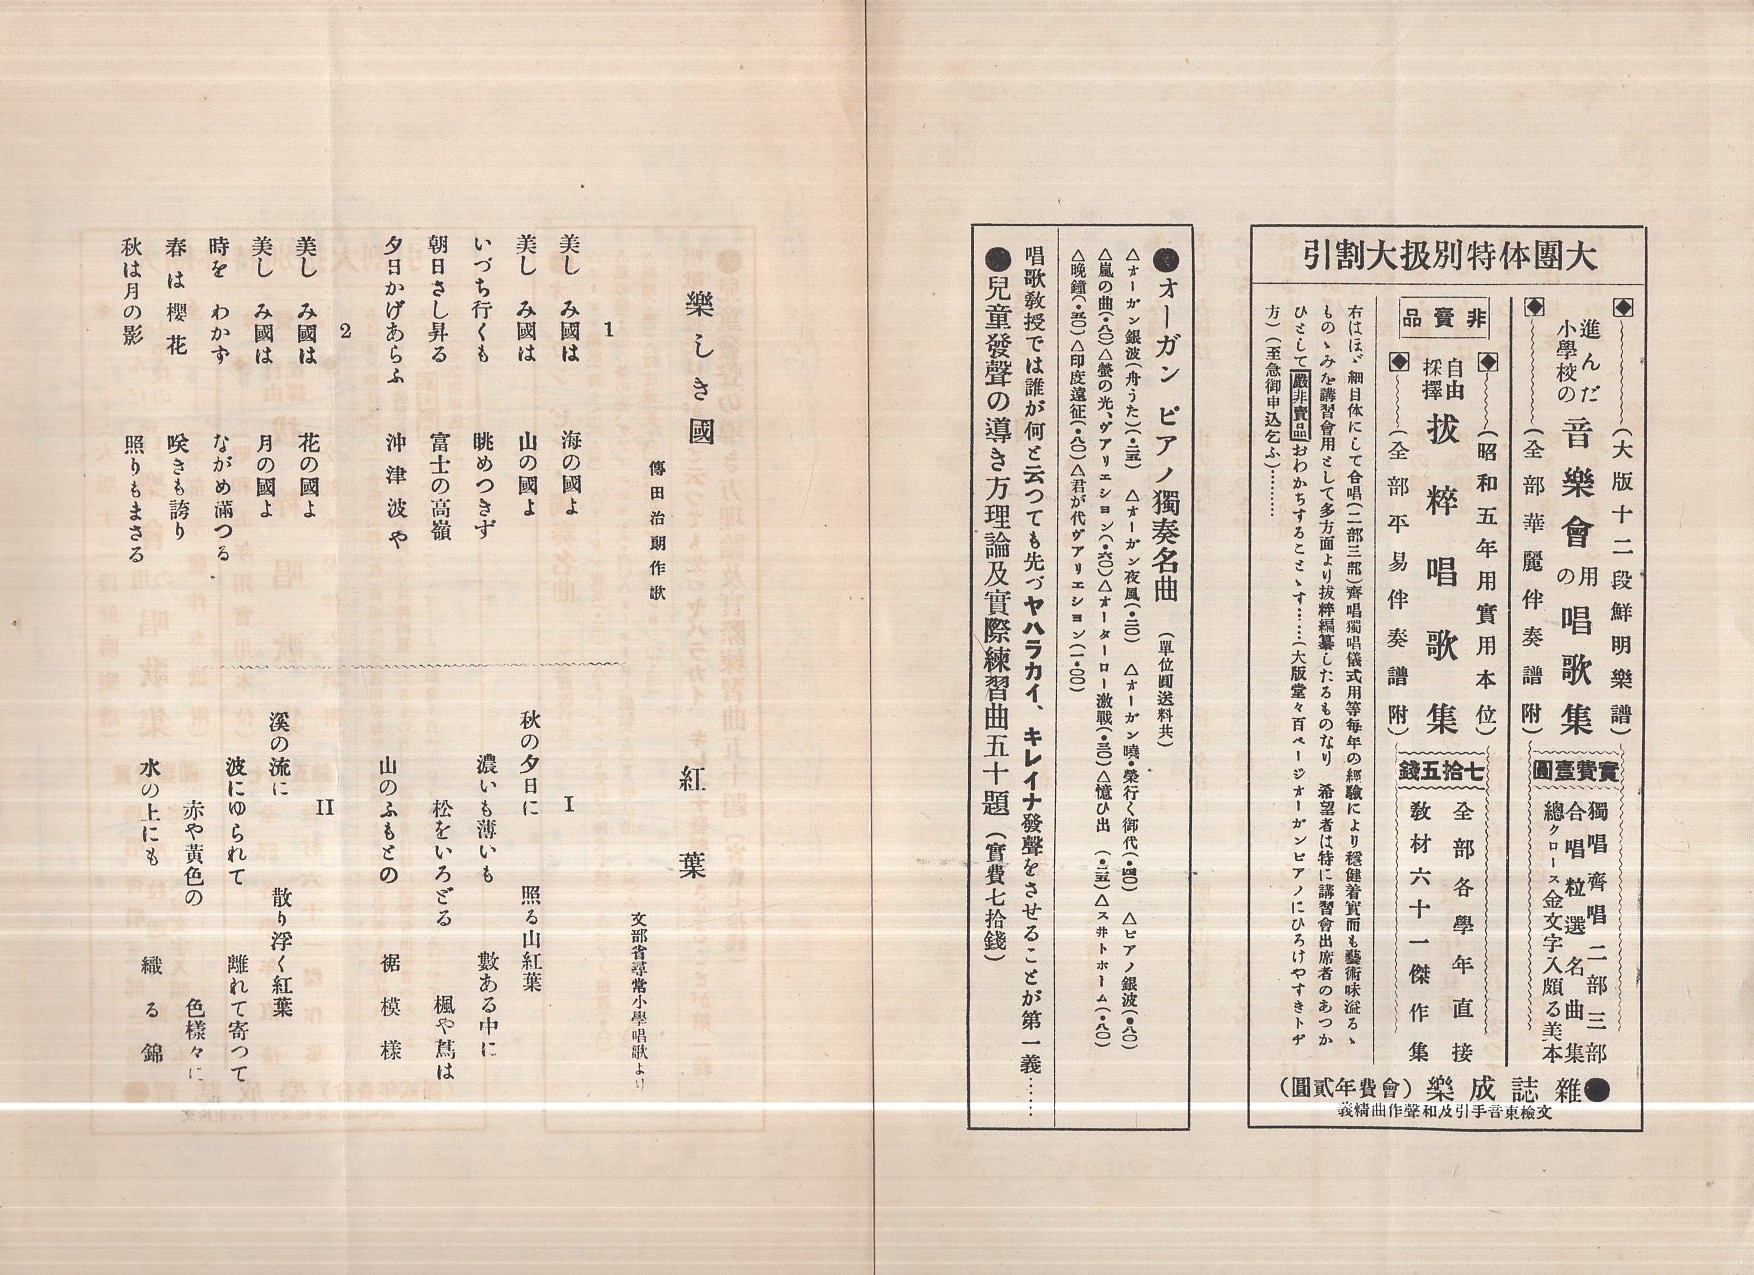 大團体特別扱大割引
(大版十二段鮮明樂譜)
進んだ小學校の音樂會用の唱歌集
(全部華麗伴奏譜附)
實費壹圓
獨唱齊唱二部三部
合唱粒選名曲集
總クロース金文字入頗る美本
(昭和五年用實用本位)
非賣品
自由採擇拔粹唱歌集
(全部平易伴奏譜附)
七拾五錢
全部各學年直接
敎材六十一傑作集
右はほゞ細目体にして合唱(二部三部)齊唱獨唱儀式用等每年の經驗により穩健着實而も藝術味溢るゝ
ものゝみを講習會用として多方面より拔粹編纂したるものなり 希望者は特に講習會出席者のあつか
ひとして嚴非賣品おわかちすることゝす……(大版堂々百ページオーガンピアノにひろけやすきトヂ
方)(至急御申込乞ふ)………
●雜誌成樂(會費年貳圓)
文檢東音手引及和聲作曲精義
●オーガン ピアノ獨奏名曲 (單位圓送料共)
△オーガン銀波(舟うた)(・二五) △オーガン夜風(・二〇) △オーガン曉・榮行く御代(・四〇) △ピアノ銀波(・八〇)
△嵐の曲(・八〇)△螢の光、ヴアリエシヨン(・六〇)△オーターロー激戰(・三〇)△憶ひ出 (・二五)△スヰトホーム(・八〇)
△晚鐘(・五〇)△印度遠征(・八〇)△君が代ヴアリエシヨン(一・〇〇)
唱歌敎授では誰が何と云つても先づヤハラカイ、キレイナ發聲をさせることが第一義……
●兒童發聲の導き方理論及實際練習曲五十題(實費七拾錢)
樂しき國
傳田治朗作歌
1
美し み國は 海の國よ
美し み國は 山の國よ
いづち行くも 眺めつきず
朝日さし昇る 富士の高嶺
夕日かげあらふ 沖津波や
2
美し み國は 花の國よ
美し み國は 月の國よ
時を わかず ながめ滿つる
春は櫻花 咲きも誇り
秋は月の影 照りもまさる
紅葉
文部省尋常小學唱歌より
I
秋の夕日に 照る山紅葉
濃いも薄いも 數ある中に
松をいろどる 楓や蔦は
山のふもとの 裾模樣
II
溪の流に 散り浮く紅葉
波にゆられて 離れて寄つて
赤や黃色の 色樣々に
水の上にも 織る錦